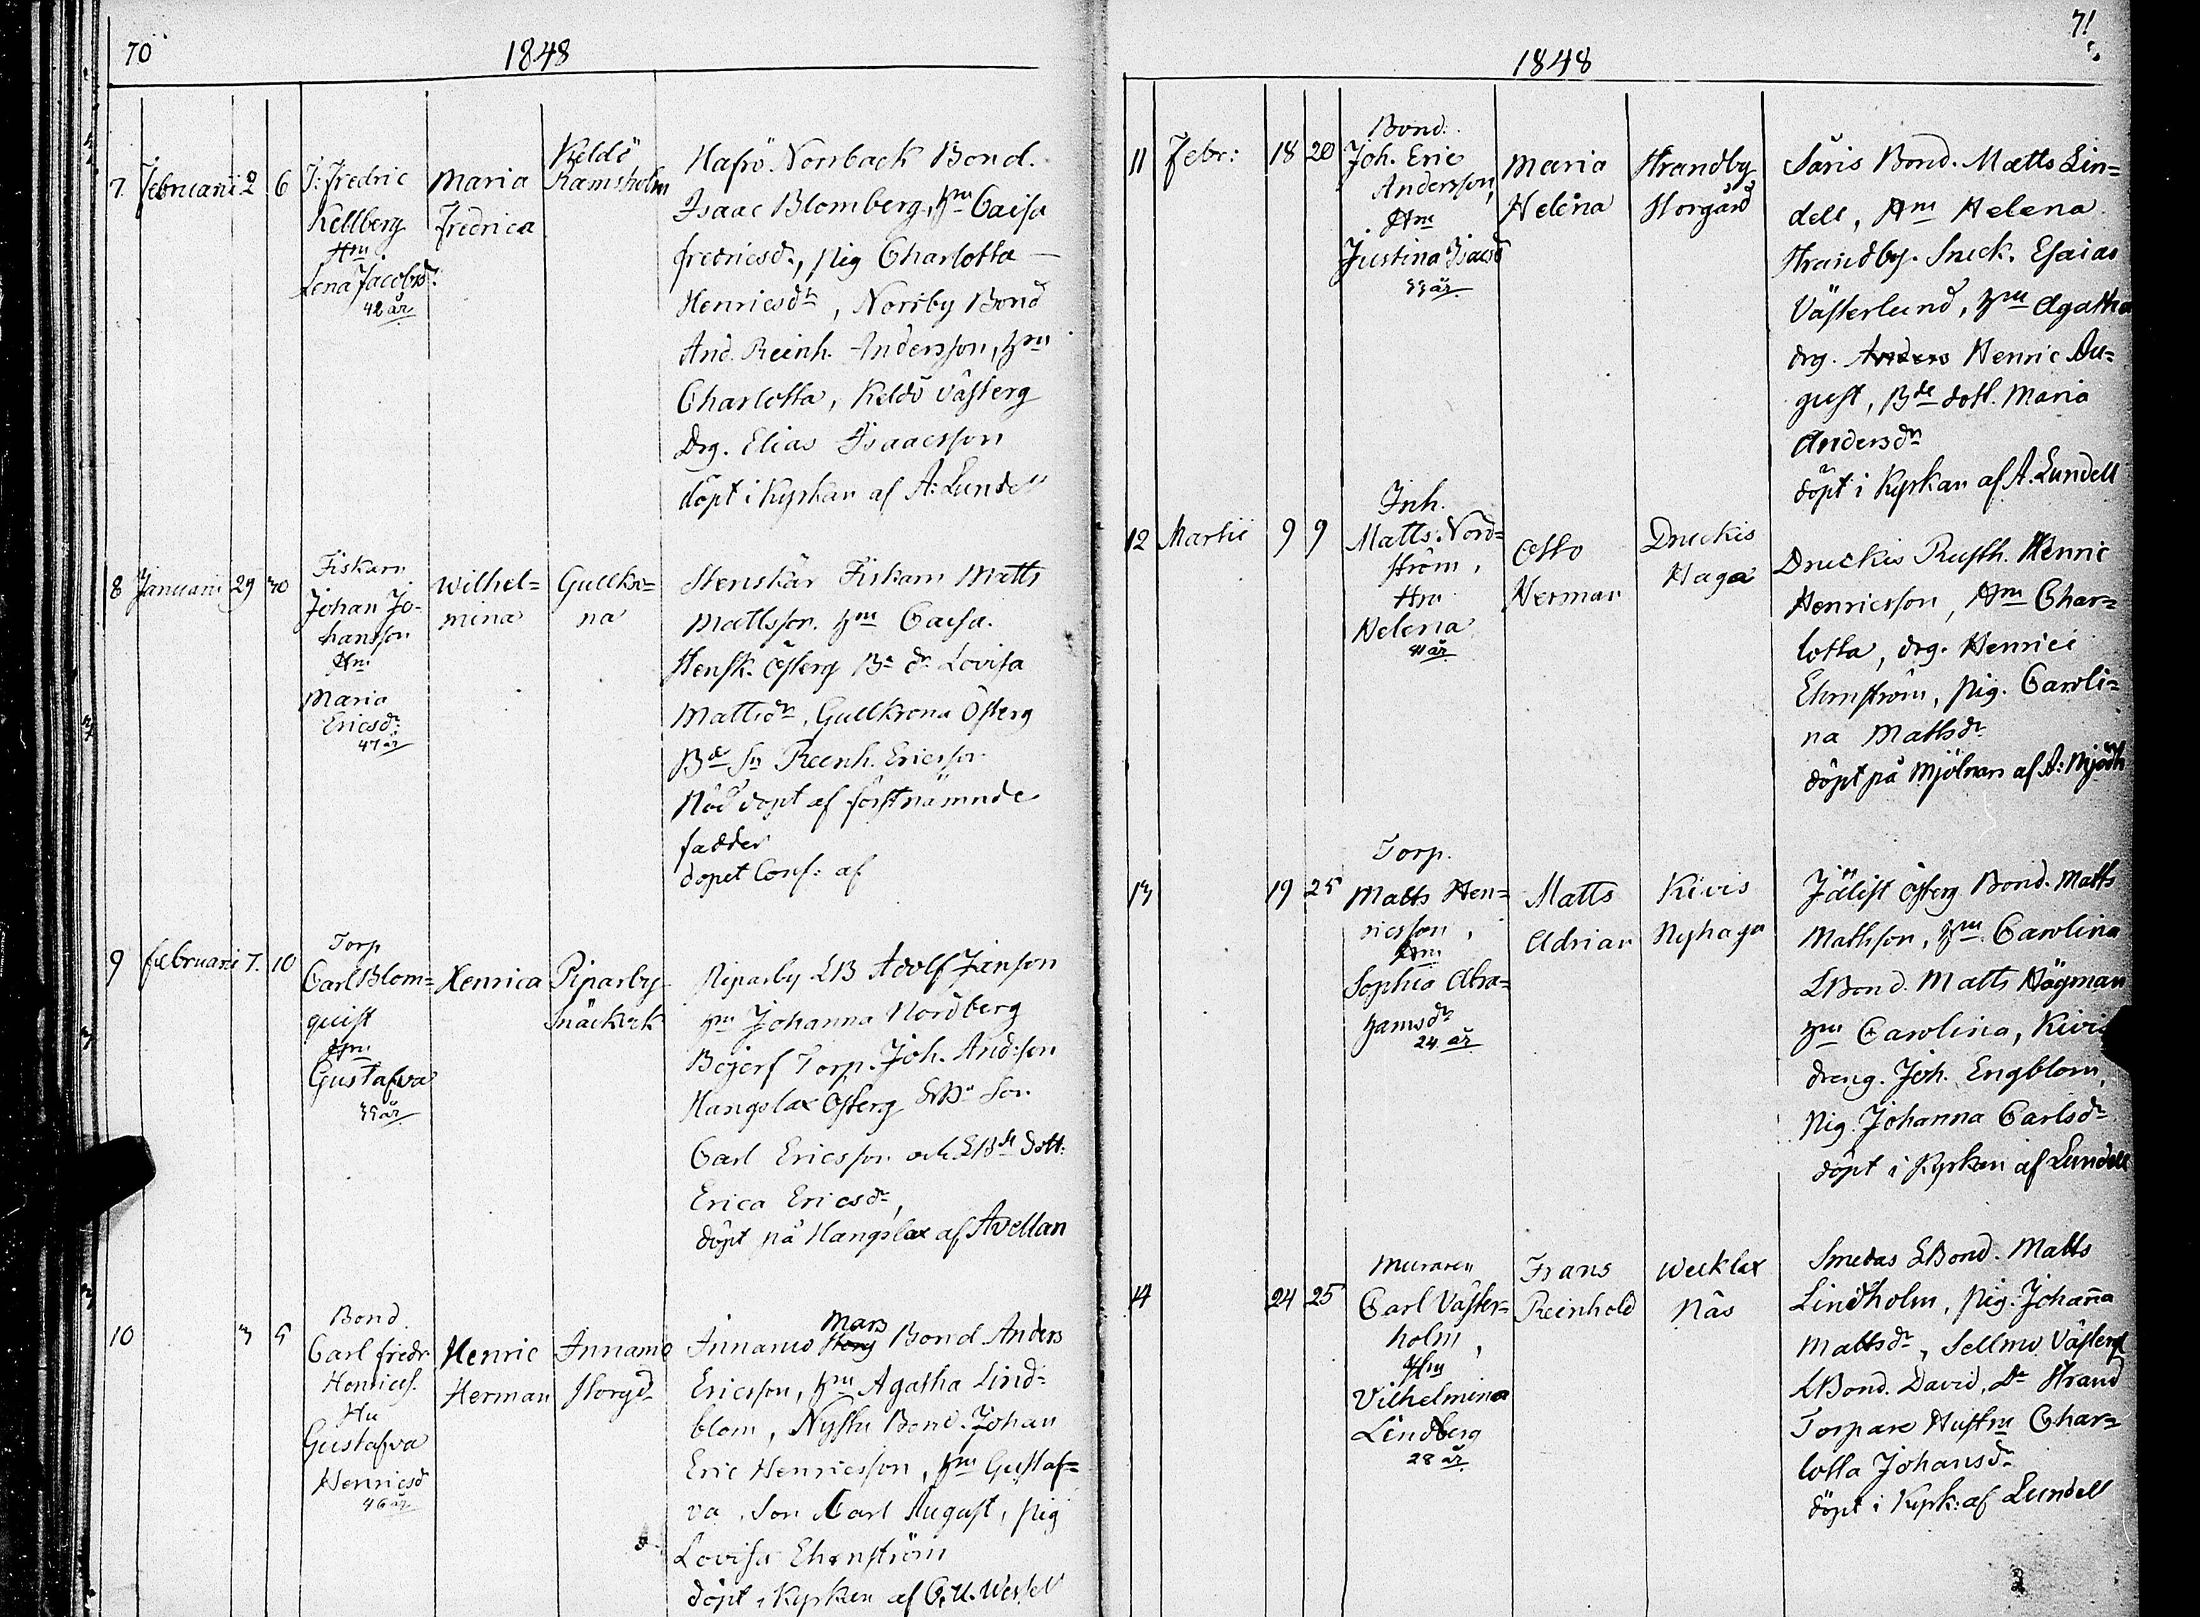 70
1848
7. Februarii 2 6
J: Fredric
Kellberg
Hru
Lena Jacobsdr.
42 år
Maria
Fredrica
Keldö
Ramsholm
Hafrö Norrback Bond.
Isaac Blomberg, hru Caisa
fredricsdr, pig Charlotta
Henricsdr, Norrby Bond
And. Reinh. Andersson, hru
Charlotta, Keldö västerg
Drg. Elias Isaacsson
döpt i Kyrkan af A: Lundell
8 Januarii 29 30
Fiskarn
Johan Jo-
hansson
Hru
Maria
Ericsdr
47 år
Wilhel=
mina
Gullkro=
na
Stenskär Fiskarn Matts
Mattsson. hru Caisa.
Hensk. österg Bs dr Lovisa
Mattsdr, Gullkrona Österg
Bde Sn Reinh. Ericsson
Nöd döpt af förstnämnde
fadder
dopet Conf: af
9 februarii 7. 10
Torp
Carl Blom=
quist
Hru
Gustafva
33 år
Henrica
Piparby
Snäckvik
Piparby LB Adolf Janson
hru Johanna Nordberg
Bojerf Torp. Joh. And:son
Hangslax österg LBs Son
Carl Ericsson och LBde dott:
Erica Ericsdr,
döpt på Hangslax af Avellan
10 3 5
Bond.
Carl fredr
Henrics.
Hu
Gustafva
Henricsd
46 år
Henric
Herman
Innamo
Storgd
Mars
Innamo Bond Anders
Ericsson, hru Agatha Lind=
blom, Nystu Bond. Johan
Eric Henricsson, hru Gustaf=
va, Son Carl August, pig
Lovisa Ehrnström
döpt i Kyrkan af C. U. Wessel
71
1848
11 Febr: 18 20
Bond.
Joh. Eric
Andersson,
Hru
Justina Isacsd
33 år
Maria
Helena
Strandby
Storgård
Säris Bond. Matts Lin=
dell, Hru Helena
Strandby. Snick. Esaias
Västerlund, hru Agatha
drg. Anders Henric Au=
gust, Bde dott. Maria
Andersdr
döpt i Kyrkan af A. Lundell
12 Martii 9 9
Inh.
Matts Nord=
ström,
Hru
Helena
41 år
Otto
Herman
Druckis
Haga
Druckis Rusth. Henric
Henricsson, Hru Char=
lotta, drg. Henric
Ehrnström, pig. Caroli=
na Mattsdr
döpt på Mjölnars af A: Mjödh
13 19 25
Torp.
Matts Hen=
ricsson,
Hru
Sophia Abra=
hamsdr
24 år
Matts
Adrian
Kivis
Nyhaga
Jälist österg Bond. Matts
Mattsson, hru Carolina
LBond. Matts Högman
hru Carolina, Kivis
dreng. Joh. Engblom,
Pig. Johanna Carlsdr
döpt i Kyrkan af Lundell
14 24 25
Muraren
Carl Väster=
holm,
Hru
Vilhelmina
Lindberg
28 år
Frans
Reinhold
Wecklax
Näs
Smedas LBond. Matts
Lindholm, pig. Johana
Mattsdr, Sellmo Västerg
LBond. David, Dr Strand
Torpare Hustru Char=
lotta Johansdr
döpt i Kyrk: af Lundell